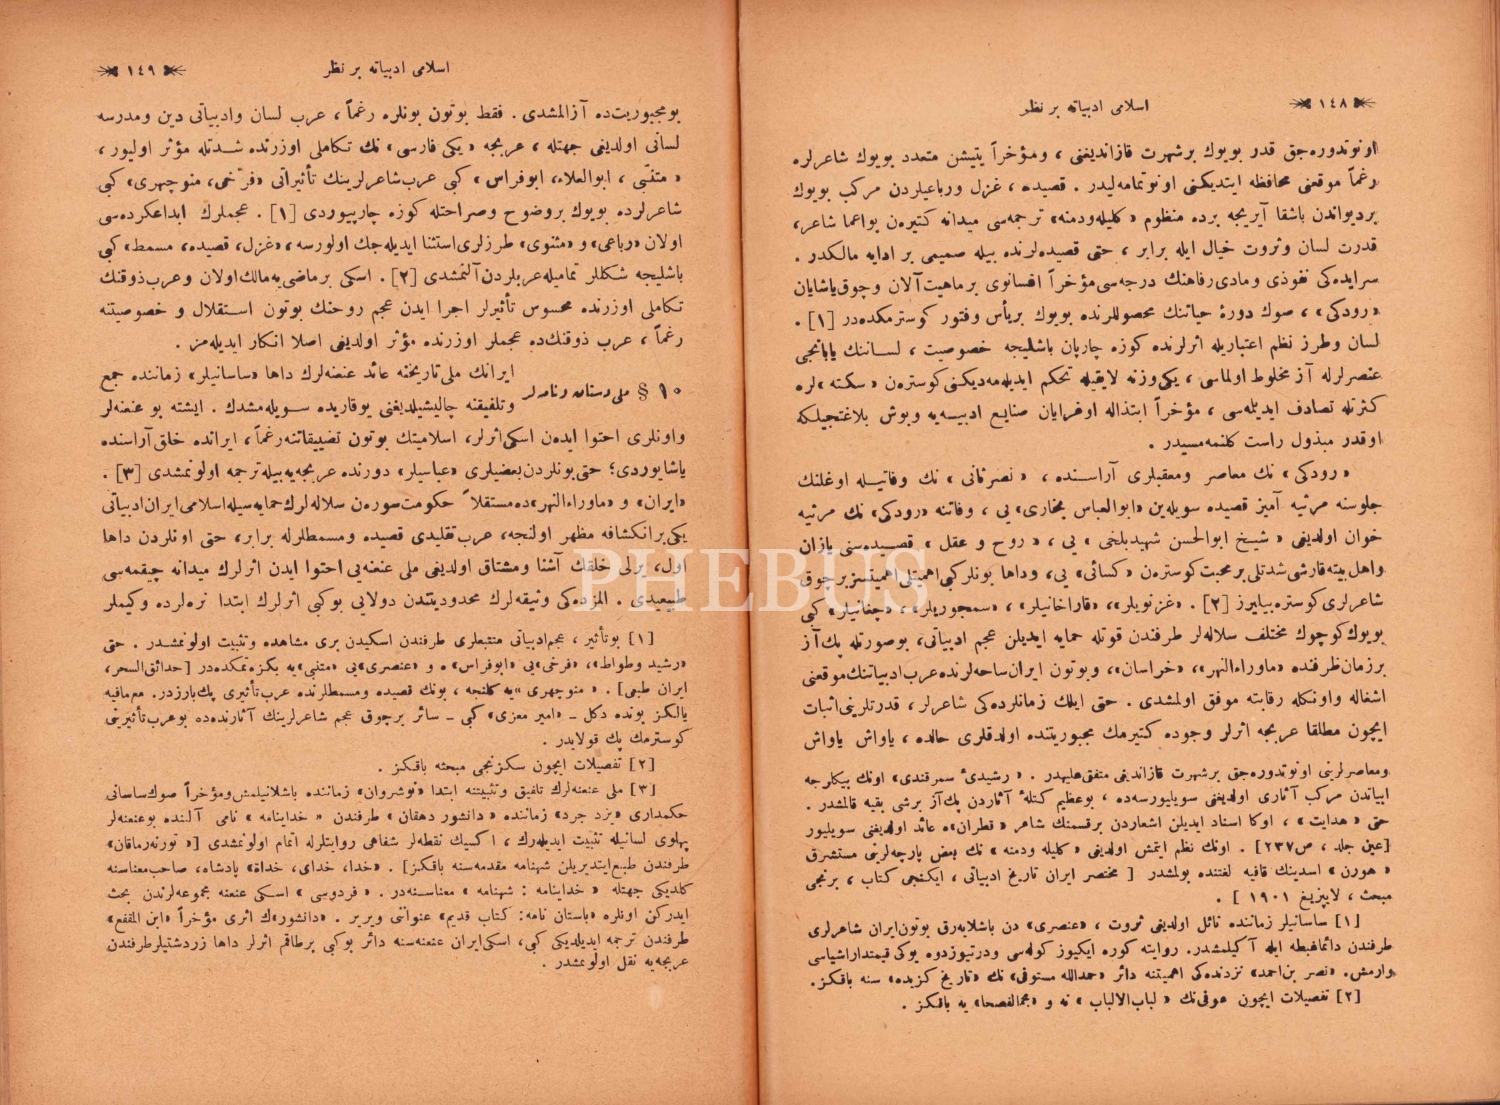 ❊ ١٤٨ ❊ اسلامی ادبیاته بر نظر
اونوتدوره‌جق قدر بویوك برشهرت قازاندیغنی ، ومؤخراً یتیشن متعدد بویوك شاعرلره
رغماً موقعنی محافظه ایتدیكنی اونوتمامه‌لیدر . قصیده ، غزل ورباعیلردن مركب بویوك
بردیواندن باشقا آیریجه برده منظوم «كلیله‌ودمنه» ترجمه‌سی میدانه كتیره‌ن بواعما شاعر،
قدرت لسان وثروت خیال ایله برابر ، حتی قصیده‌لرنده بیله صمیمی بر ادایه مالكدر .
سرایده‌كی نفوذی ومادی رفاهنك درجه‌سی مؤخراً افسانوی برماهیت آلان وچوق یاشایان
«رودكی» ، صوك دورۀ حیاتنك محصوللرنده بویوك بریأس وفتور كوسترمكده‌در [١] .
لسان وطرز نظم اعتباریله اثرلرنده كوزه چارپان باشلیجه خصوصیت ، لساننك یابانجی
عنصرلرله آز مخلوط اولماسی ، یكی وزنه لایقیله تحكم ایدیله‌مه‌دیكنی كوستره‌ن «سكته»لره
كثرتله تصادف ایدیله‌سی ، مؤخراً ابتذاله اوغرایان صنایع ادبیه‌یه وبوش بلاغتجیلكه
اوقدر مبذول راست كلنمه‌مسیدر .
«رودكی» نك معاصر ومعقبلری آراسنده ، «نصرثانی» نك وفاتیله اوغلنك
جلوسنه مرثیه آمیز قصیده سویله‌ین «ابوالعباس بخاری»یی ، وفاتنه «رودكی» نك مرثیه
خوان اولدیغی «شیخ ابوالحسن شهیدبلخی» یی ، «روح و عقل» قصیده‌سنی یازان
واهل بیته قارشی شدتلی بر محبت كوستره‌ن «كسائی» یی، وداها بونلركبی اهمیتلی اهمیتسز برچوق
شاعرلری كوستره‌بیلیرز [٢] . «غزنویلر»، «قاراخانیلر» ، «سمجوریلر» ، «چغانیلر» كبی
بویوك كوچوك مختلف سلاله‌لر طرفندن قوتله حمایه ایدیلن عجم ادبیاتی، بوصورتله پك آز
برزمان ظرفنده «ماوراءالنهر»، «خراسان»، وبوتون ایران ساحه‌لرنده عرب ادبیاتنك موقعنی
اشغاله واونكله رقابته موفق اولمشدی . حتی ایلك زمانلرده‌كی شاعرلر ، قدرتلرینی اثبات
ایچون مطلقا عربجه اثرلر وجوده كتیرمك مجبوریتنده اولدقلری حالده ، یاواش یاواش
ومعاصرلرینی اونوتدوره‌جق برشهرت قازاندیغی متفق علیهدر . «رشیدیٔ سمرقندی» اونك بیكلرجه
ابیاتدن مركب آثاری اولدیغنی سویلیورسه‌ده ، بوعظیم كتلۀ آثاردن پك آز برشی بقیه قالمشدر .
حتی «هدایت» ، اوكا اسناد ایدیلن اشعاردن برقسمنك شاعر «قطران»ه عائد اولدیغنی سویلیور
[عین جلد ، ص٢٣٧] . اونك نظم ایتمش اولدیغی «كلیله ودمنه» نك بعض پارچه‌لرینی مستشرق
«هورن» اسدینك قافیه لغتنده بولمشدر [ مختصر ایران تاریخ ادبیاتی ، ایكنجی كتاب ، برنجی
مبحث ، لایپزیغ ١٩٠١ ] .
[١] ساسانیلر زماننده نائل اولدیغی ثروت ، «عنصری» دن باشلایه‌رق بوتون ایران شاعرلری
طرفندن دائماغبطه ایله آكیلمشدر. روایته كوره ایكیوز كوله‌سی ودرتیوزدوه یوكی قیمتدار اشیاسی
وارمش. «نصر بن احمد» نزدنده‌كی اهمیتنه دائر «حمدالله مستوفی» نك «تاریخ كزیده» سنه باقكز.
[٢] تفصیلات ایچون عوفی نك «لباب الالباب» نه و «مجمع الفصحا» یه باقكز .
اسلامی ادبیاته بر نظر ❊ ١٤٩ ❊
بومجبوریت‌ده آزالمشدی . فقط بوتون بونلره رغماً ، عرب لسان وادبیاتی دین ومدرسه
لسانی اولدیغی جهتله ، عربجه «یكی فارسی» نك تكاملی اوزرنده شدتله مؤثر اولیور ،
«متنبی ، ابوالعلاء، ابوفراس» كبی عرب شاعرلرینك تأثیراتی «فرخی، منوچهری» كبی
شاعرلرده بویوك بروضوح وصراحتله كوزه چارپیوردی [١] . عجملرك ابداعكرده‌سی
اولان «رباعی» و «مثنوی» طرزلری استثنا ایدیله‌جك اولورسه، «غزل، قصیده، مسمط» كبی
باشلیجه شكللر تمامیله عربلردن آلنمشدی [٢] . اسكی برماضی‌یه مالك اولان وعرب ذوقنك
تكاملی اوزرنده محسوس تأثیرلر اجرا ایدن عجم روحنك بوتون استقلال و خصوصیتنه
رغماً ، عرب ذوقنك‌ده عجملر اوزرنده مؤثر اولدیغی اصلا انكار ایدیله‌مز .
§ ١٠ ملی دستانه و نامه‌لر ایرانك ملی تاریخنه عائد عنعنه‌لرك داها «ساسانیلر» زماننده جمع
وتلفیقنه چالیشیلدیغنی یوقاریده سویله‌مشدك . ایشته بو عنعنه‌لر
واونلری احتوا ایده‌ن اسكی اثرلر، اسلامیتك بوتون تضییقاتنه رغماً ، ایرانده خلق آراسنده
یاشایوردی؛ حتی بونلردن بعضیلری «عباسیلر» دورنده عربجه‌یه بیله ترجمه اولونمشدی [٣] .
«ایران» و «ماوراءالنهر»ده مستقلاً حكومت سوره‌ن سلاله‌لرك حمایه‌سیله اسلامی ایران ادبیاتی
یكی برانكشافه مظهر اولنجه، عرب تقلیدی قصیده ومسمطلرله برابر، حتی اونلردن داها
اول، یرلی خلقك آشنا ومشتاق اولدیغی ملی عنعنه‌یی احتوا ایدن اثرلرك میدانه چیقمه‌سی
طبیعیدی . المزده‌كی وثیقه‌لرك محدودیتندن دولایی بوكبی اثرلرك ابتدا نره‌لرده وكیملر
[١] بوتأثیر ، عجم ادبیاتی متتبعلری طرفندن اسكیدن بری مشاهده وتثبیت اولونمشدر . حتی
«رشید وطواط»، «فرخی»یی «ابوفراس»ه و «عنصری»یی «متنبی»یه بكزه‌تمكده‌در [حدائق السحر،
ایران طبعی] . «منوچهری»یه كلنجه ، بونك قصیده ومسمطلرنده عرب تأثیری پك بارزدر. مع‌مافیه
یالكز بونده دكل ـ «امیر معزی» كبی ـ سائر برچوق عجم شاعرلرینك آثارنده‌ده بوعرب تأثیرینی
كوسترمك پك قولایدر .
[٢] تفصیلات ایچون سكزنجی مبحثه باقكز .
[٣] ملی عنعنه‌لرك تلفیق وتثبیتنه ابتدا «نوشروان» زماننده باشلانیلمش ومؤخراً صوك ساسانی
حكمداری «یزد جرد» زماننده «دانشور دهقان» طرفندن «خداینامه» نامی آلتنده بوعنعنه‌لر
پهلوی لسانیله تثبیت ایدیله‌رك ، اكسیك نقطه‌لر شفاهی روایتلرله اتمام اولونمشدی [«تورنه‌رماقان»
طرفندن طبع ایتدیریلن شهنامه مقدمه‌سنه باقكز] . «خدا، خدای، خداة» پادشاه، صاحب معناسنه
كلدیكی جهتله «خداینامه : شهنامه» معناسنه‌در . «فردوسی» اسكی عنعنه مجموعه‌لرندن بحث
ایدركن اونلره «باستان نامه: كتاب قدیم» عنواننی ویریر . «دانشور»ك اثری مؤخراً «ابن المقفع»
طرفندن ترجمه ایدیلدیكی كبی، اسكی ایران عنعنه‌سنه دائر بوكبی برطاقم اثرلر داها زردشتیلر طرفندن
عربجه‌یه نقل اولونمشدر .
PHEBUS